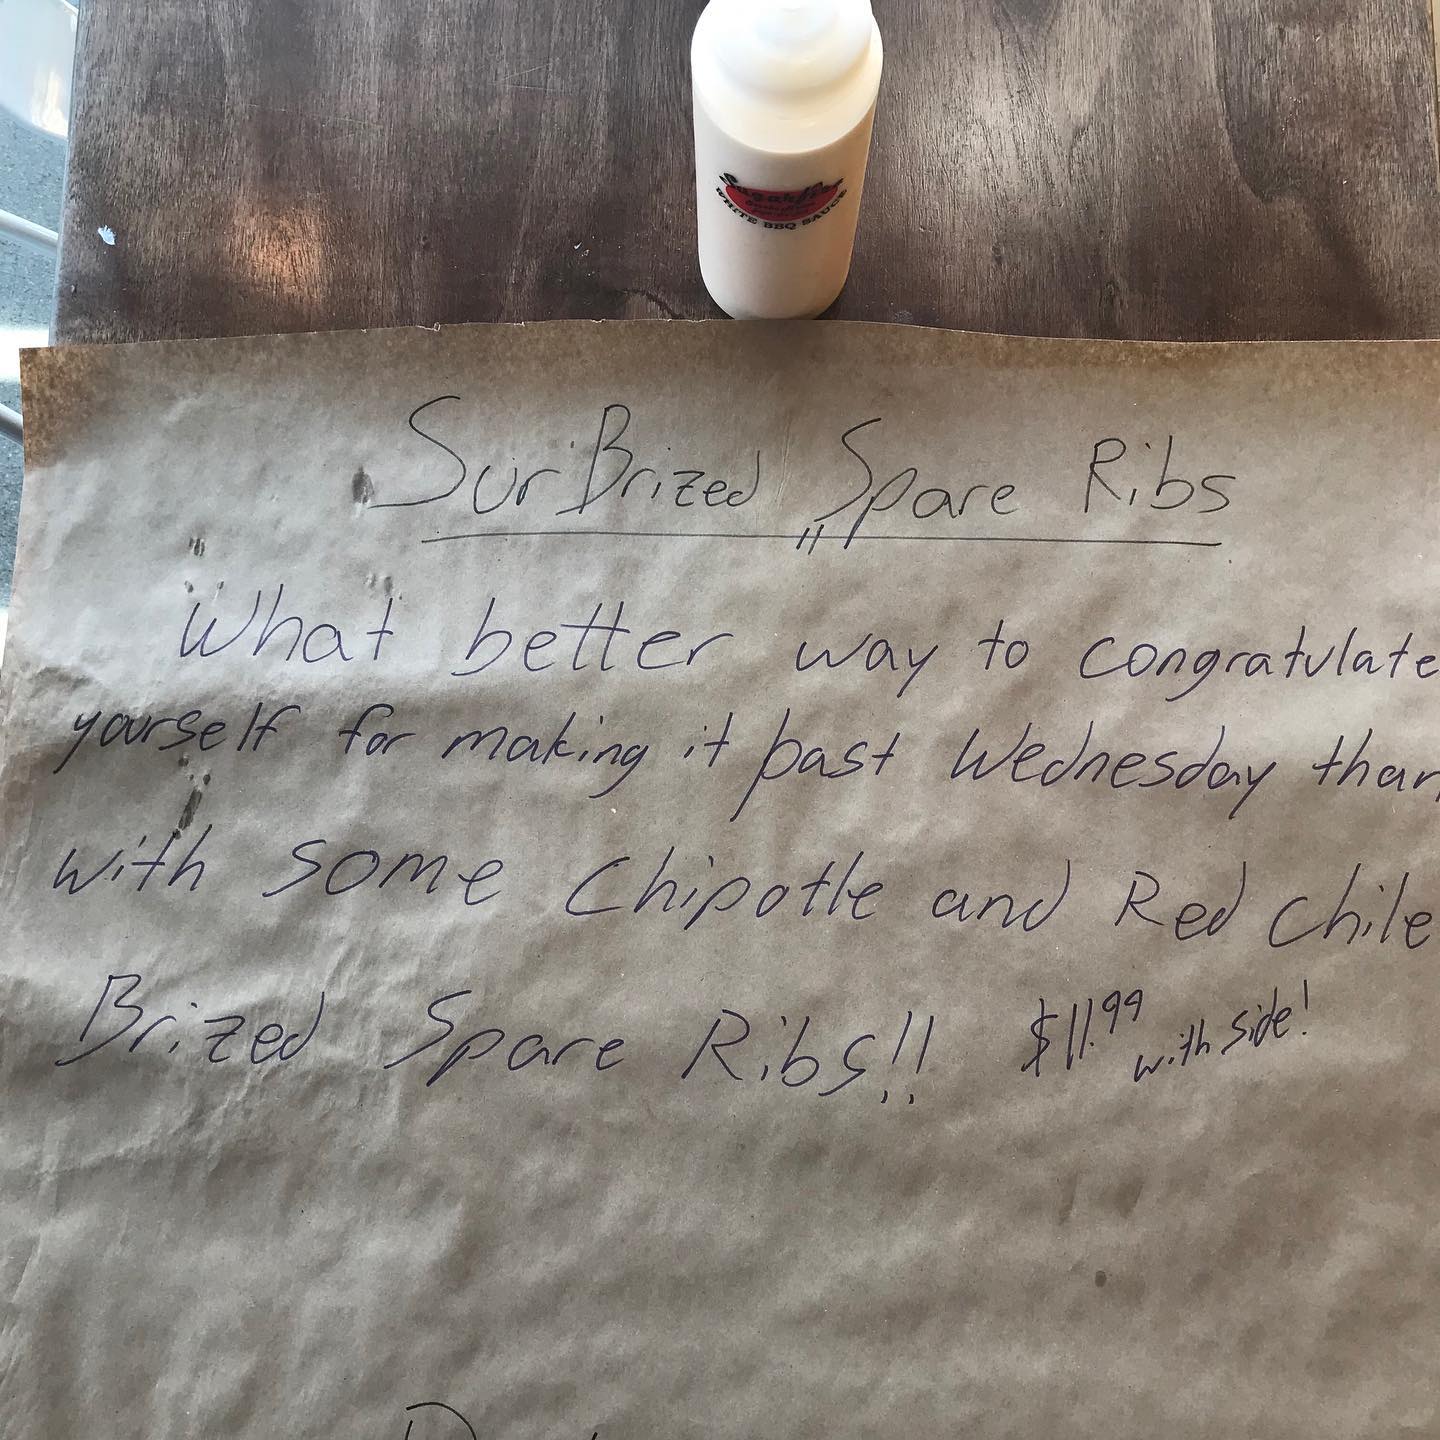 WHITE BBQ SAUCE
SurBrized Spare Ribs
What better way to congratulate
yourself for making it past Wednesday than
with some Chipotle and Red Chile
Brized Spare Ribs!! $11.99 with side!